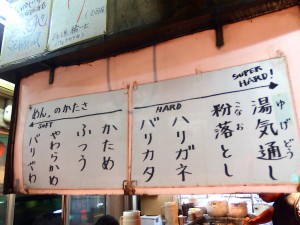 SUPER HARD!
湯気通し
ゆげどうし
粉落とし
こなおとし
ハリガネ
バリカタ
HARD
めん。のかたさ
かため
ふつう
やわらかめ
バリやわ
SOFT